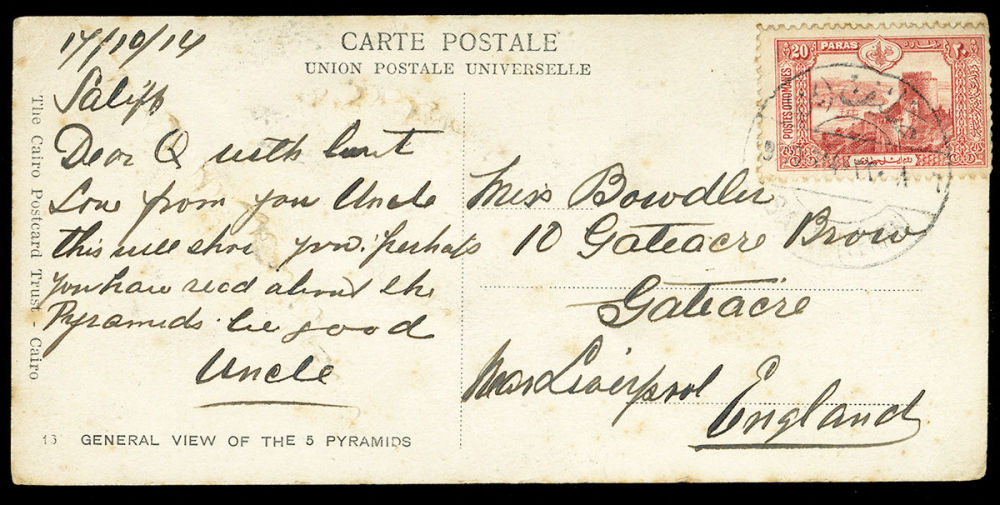 CARTE POSTALE
UNION POSTALE UNIVERSELLE
17/10/14
Salif
Dear Q with best
Love from you Uncle
this will show you. perhaps
you have read about the
Pyramids. be good
Uncle
Miss Bowdler
10 Gateacre Brow
Gateacre
Near Liverpool
England
20 PARAS ٢٠
POSTES OTTOMANES
The Cairo Postcard Trust - Cairo
13 GENERAL VIEW OF THE 5 PYRAMIDS